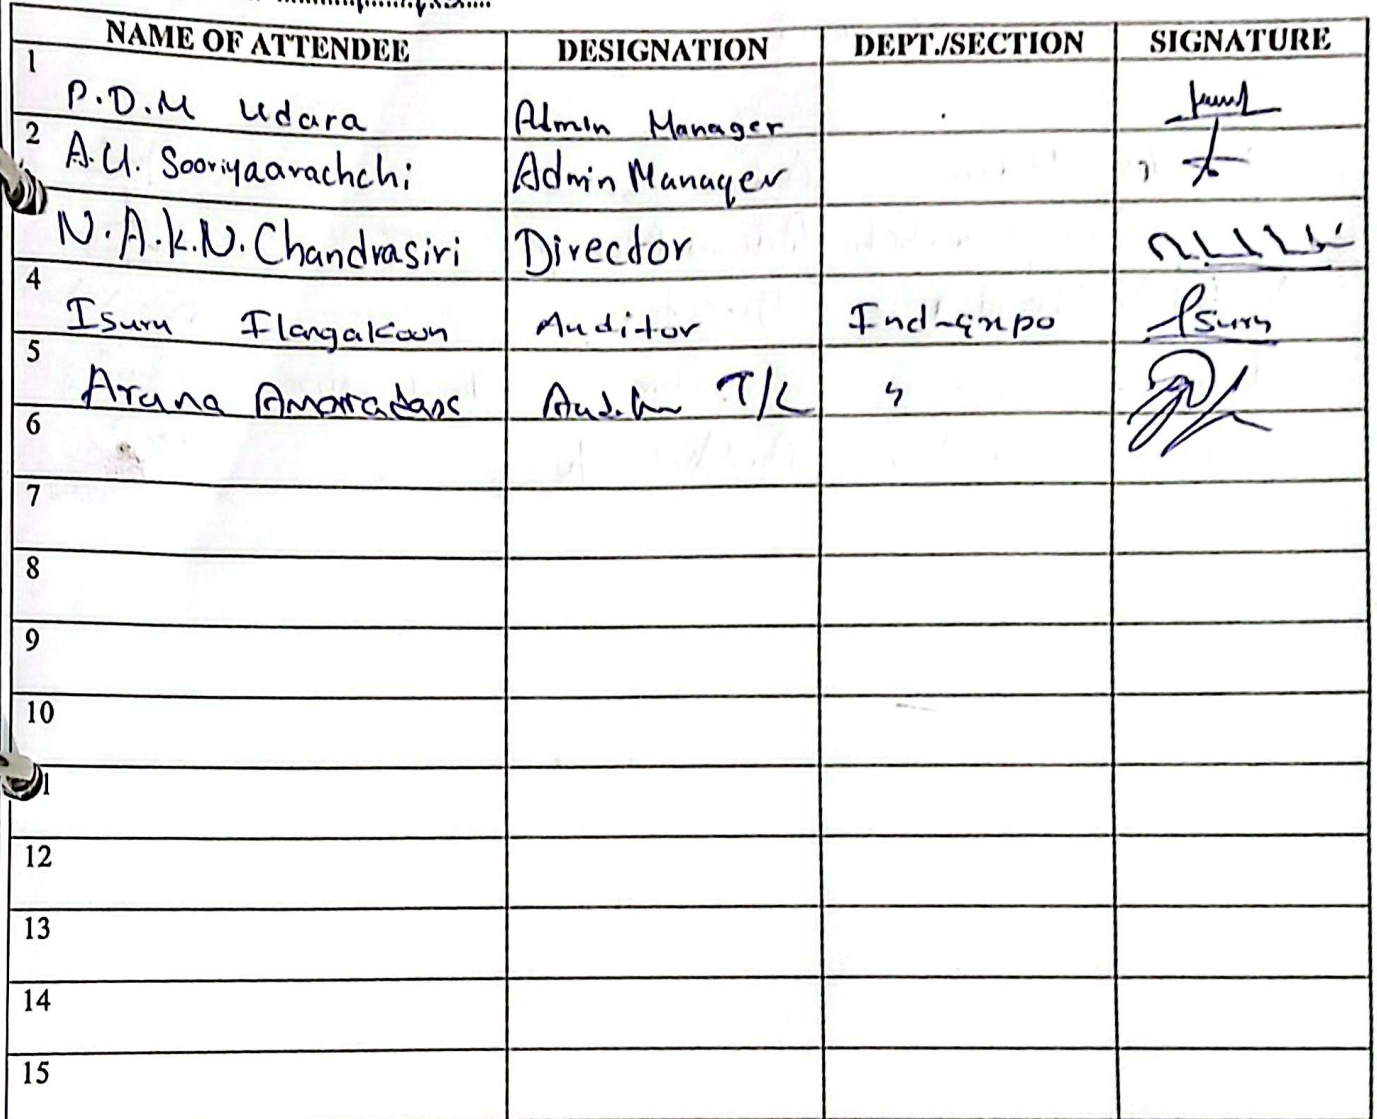 NAME OF ATTENDEE DESIGNATION DEPT./SECTION SIGNATURE
1 P.D.M Udara Admin Manager
2 A.U. Sooriyaarachchi Admin Manager
N.A.K.N. Chandrasiri Director
4 Isuru Ilangakoon Auditor Ind-Expo Isuru
5 Aruna Amaradasa T/L "
6
7
8
9
10
1
12
13
14
15